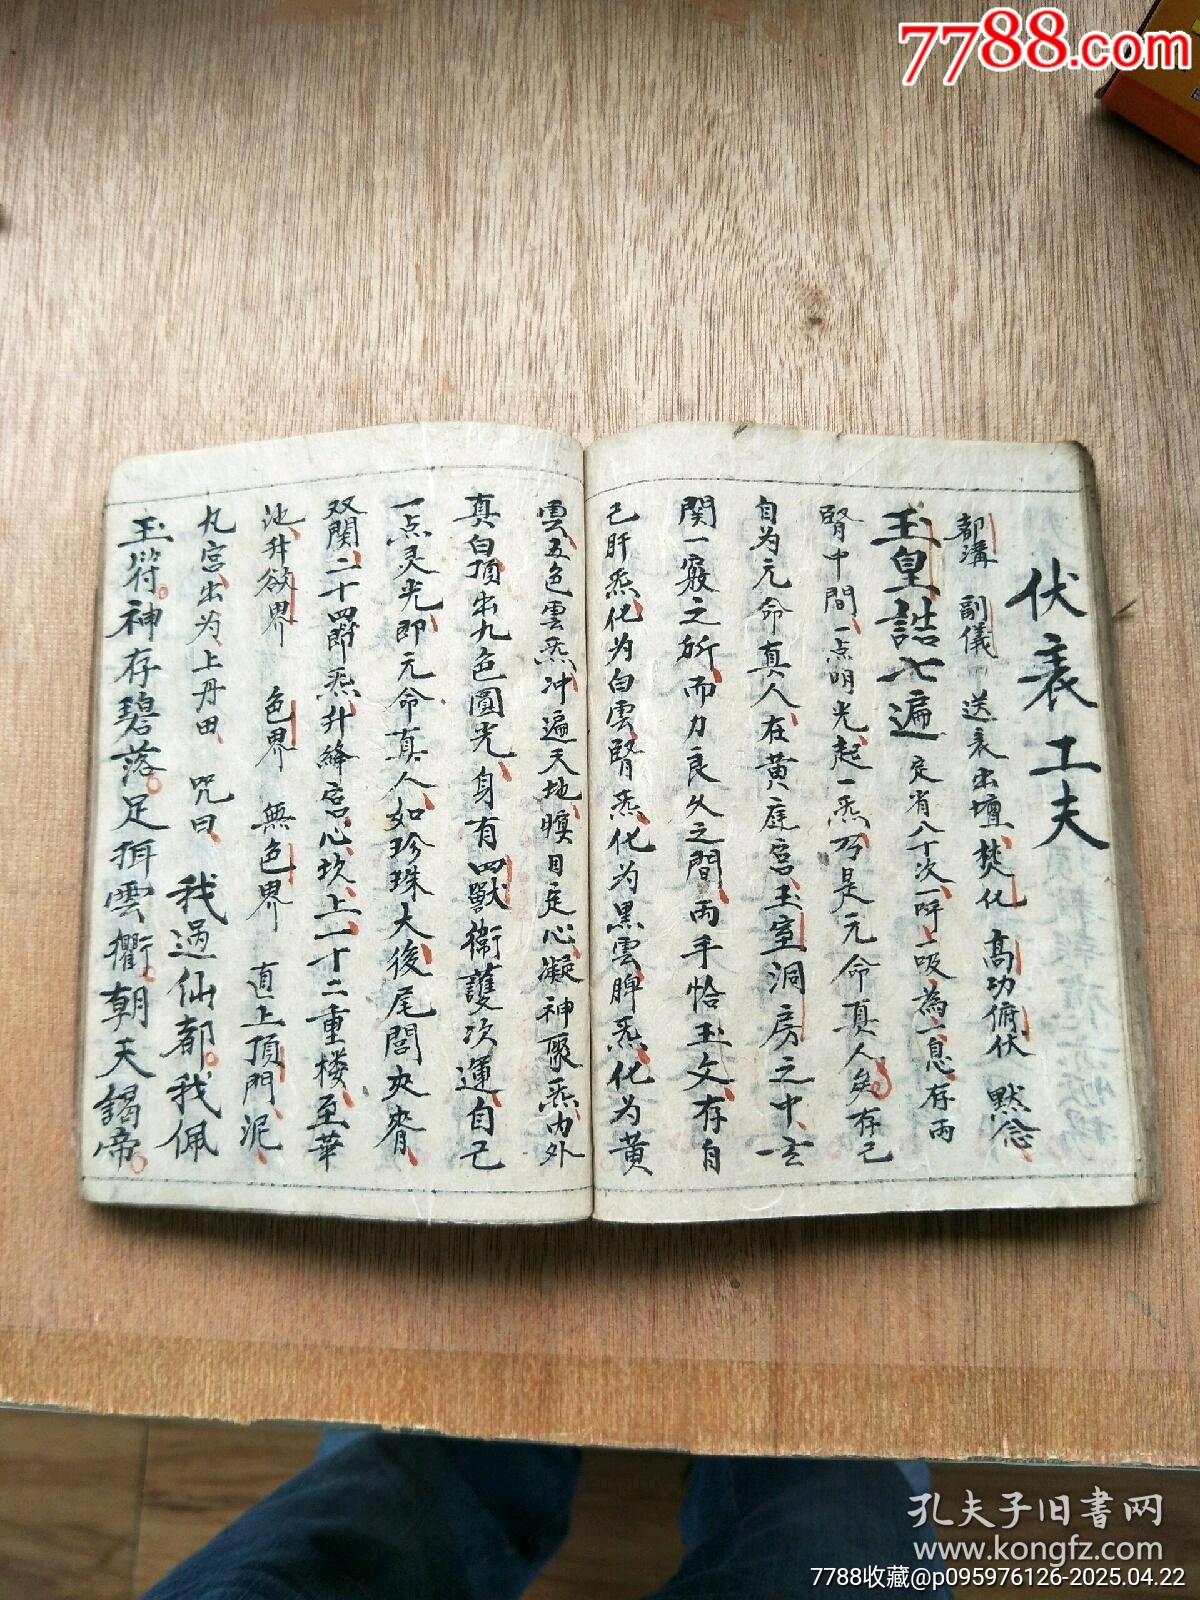 7788.com
伏表工夫
都講 副儀 送表出壇焚化 高功俯伏 默念
玉皇誥七遍 定省八十次一呼一吸為一息存兩
腎中間一点明光起一炁乃是元命真人矣存己
自为元命真人在黄庭宫玉室洞房之中玄
関一竅之所而力良久之間兩手恰玉文存自
己肝炁化为白雲腎炁化为黑雲脾炁化为黄
雲五色雲炁冲遍天地瞑目定心凝神聚炁内外
真白頂出九色圓光身有四獸衛護次運自己
一点灵光即元命真人如珍珠大後尾閭夾脊
双関二十四節炁升絳宫心坎上一十二重楼至華
池升欲界 色界 無色界 直上頂門泥
丸宫出为上丹田 咒曰 我過仙都我佩
玉符神存碧落足拑雲衢朝天謁帝
孔夫子旧書网
www.kongfz.com
7788收藏@p095976126-2025.04.22